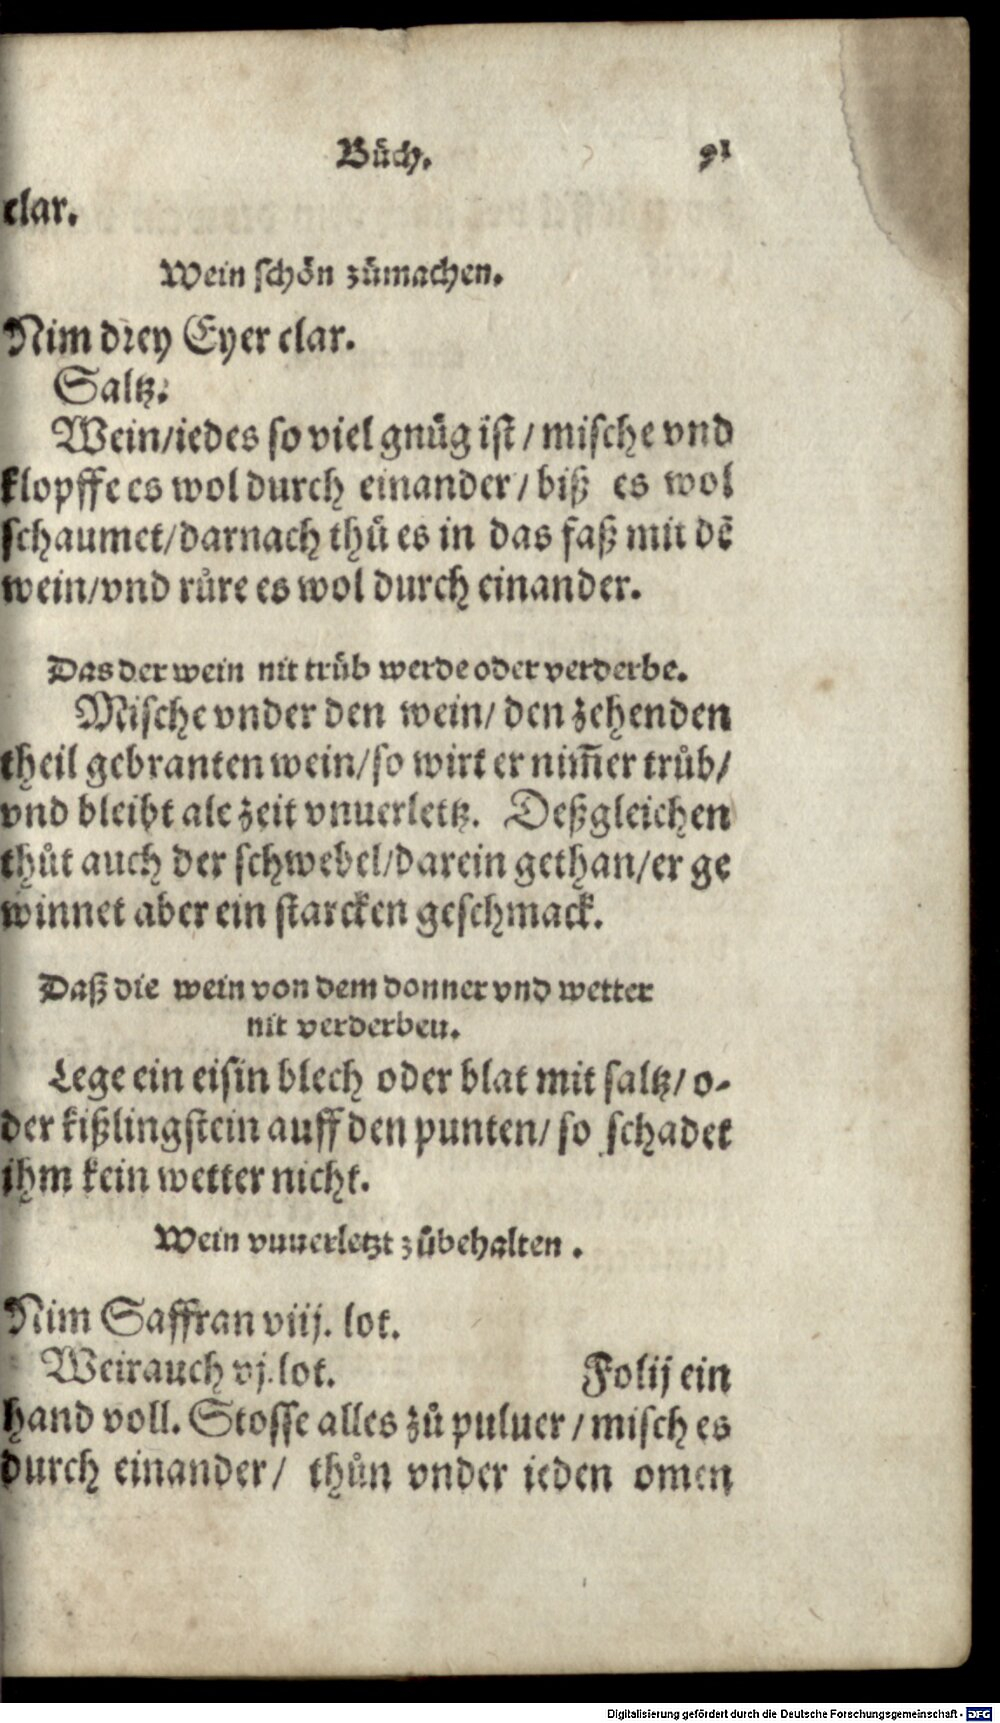 Bůch. 91
clar.
Wein schön zůmachen.
Nim drey Eyer clar.
Saltz.
Wein/iedes so viel gnůg ist/mische vnd
klopffe es wol durch einander/biß es wol
schaumet/darnach thů es in das faß mit dē
wein/vnd růre es wol durch einander.
Das der wein nit trůb werde oder verderbe.
Mische vnder den wein/den zehenden
theil gebranten wein/so wirt er nim̄er trůb/
vnd bleibt ale zeit vnuerlettz. Deßgleichen
thůt auch der schwebel/darein gethan/er ge
winnet aber ein starcken geschmack.
Daß die wein von dem donner vnd wetter
nit verderben.
Lege ein eisin blech oder blat mit saltz/o-
der kißlingstein auff den punten/so schadet
ihm kein wetter nicht.
Wein vnuerletzt zůbehalten.
Nim Saffran viij. lot.
Weirauch vj. lot. Folij ein
hand voll. Stosse alles zů puluer/misch es
durch einander/ thůn vnder ieden omen
Digitalisierung gefördert durch die Deutsche Forschungsgemeinschaft - DFG